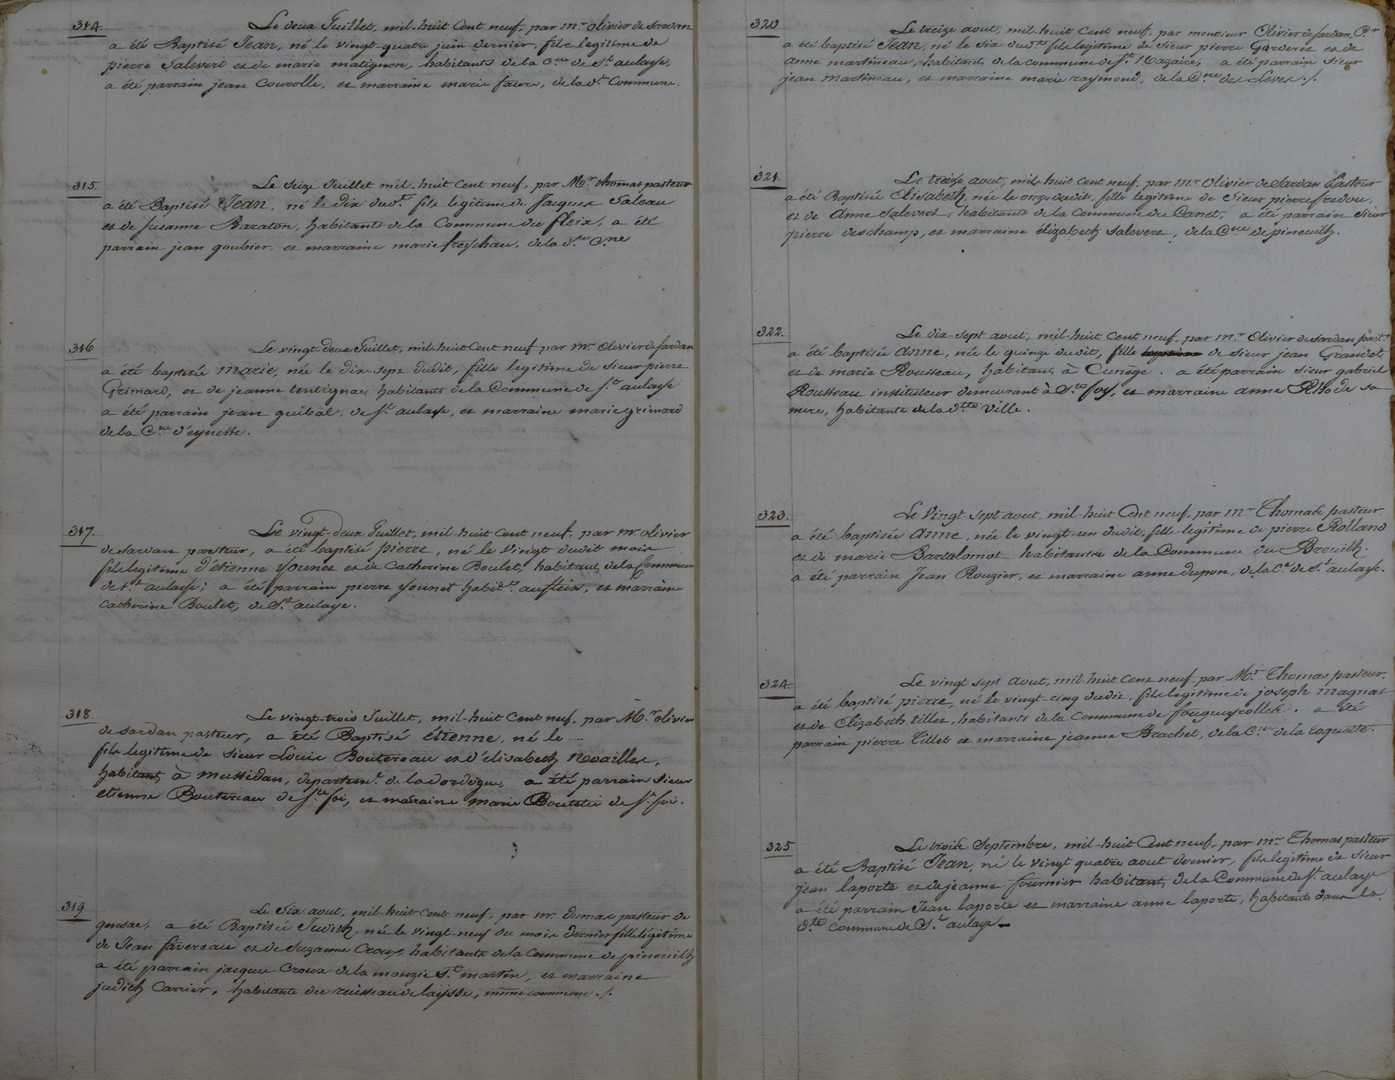 314.
Le deux Juillet, mil-huit Cent neuf, par mr olivier de sardan
a été Baptisé Jean, né le vingt-quatre juin dernier, fils legitime de
pierre Salevert et de marie matignon, habitants de la Cne de St aulaye,
a été parrain jean Courolle, et marraine marie faure, de la dt Commune.
315.
Le Seize Juillet mil-huit Cent neuf, par Mr. thomas pasteur
a été Baptisé Jean, né le dix dudt. fils legitime de Jacques Saleau
et de susanne Baraton, habitants de la Commune du fleix, a été
parrain jean goubier, et marraine marie, de la dte Cne
316
Le vingt-deux Juillet, mil-huit Cent neuf par mr. olivier de sardan
a été baptisée marie, née le dix-sept dudit, fille legitime de Sieur pierre
Grimard, et de jeanne, habitants de la Commune de St aulaye
a été parrain jean guibal, de St aulaye, et marraine marie grimard
de la Cne d'eynesse.
317.
Le vingt-deux Juillet, mil-huit Cent neuf, par mr olivier
de sardan pasteur, a été baptisé pierre, né le vingt dudit mois
fils legitime d'étienne younet et de Catherine Boulet, habitants de la Commune
de St aulaye; a été parrain pierre younet habitt. au fleix, et marraine
Catherine Boulet, de St aulaye.
318
Le vingt-trois Juillet, mil-huit Cent neuf, par Mr. olivier
de sardan pasteur, a été Baptisé étienne, né le ...
fils legitime de Sieur Louis Boutereau et d'élisabeth Noailles,
habitants à mussidan, departemt. de la dordogne, a été parrain Sieur
etienne Boutereau de Ste foi, et maraine marie de Ste foi.
319
Le Six aout, mil-huit Cent neuf, par mr. dumas pasteur de
gensac, a été Baptisée Judith, née le vingt neuf du mois dernier fille légitime
de Jean favereau et de Suzanne Croux, habitants de la Commune de pineuilh
a été parrain jacques Croux de la mouzie St martin, et marraine
judith Carrier, habitante du ruisseau de, même commune ./.
320
Le treize aout, mil-huit Cent neuf, par monsieur Olivier de sardan, Pr
a été baptisé Jean, né le Six dudt fils legitime de Sieur pierre Garderes et de
anne martineau, habitants de la commune de St Nazaire, a été parrain Sieur
jean martineau, et marraine marie raymond, de la Cne des Leves ./.
321.
Le treize aout, mil-huit Cent neuf, par mr Olivier de Sardan Pasteur
a été Baptisée Elisabeth, née le onze dudit, fille legitime de Sieur pierre fredou,
et de Anne Salevert, habitants de la Commune de Canet, a été parrain Sieur
pierre deschamp, et marraine élizabeth Salevert, de la Cne de pineuilh.
322.
Le dix-sept aout, mil-huit Cent neuf, par mr Olivier de sardan pastr
a été baptisée Anne, née le quinze dudit, fille de Sieur jean Grandet
et de marie Rousseau, habitants à Cunege. a été parrain Sieur gabriel
Rousseau instituteur demeurant à Ste foy, et marraine anne de Sa
mere, habitante de la dte ville.
323.
Le Vingt sept aout, mil-huit Cent neuf, par mr Thomas pasteur
a été baptisée Anne, née le vingt-un dudit, fille legitime de pierre Rolland
et de marie Bartalomot habitants de la Commune du Breuilh.
a été parrain Jean Rougier, et marraine anne dupon, de la Ce de St aulaye.
324.
Le vingt sept aout, mil-huit Cent neuf, par Mr Thomas pasteur,
a été baptisé pierre, né le vingt-cinq dudit, fils legitime de joseph magnat
et de Elizabeth tillet, habitants de la Commune de fougueyrolles. a été
parrain pierre Tillet et marraine jeanne Brachet, de la Cne de la roquette.
325
Le trois Septembre, mil-huit Cent neuf, par mr Thomas pasteur
a été Baptisé Jean, né le vingt quatre aout dernier, fils legitime de Sieur
jean laporte et de jeanne fournier habitants de la Commune de St aulaye
a été parrain Jean laporte et marraine anne laporte, habitants dans la
dte commune de St aulaye